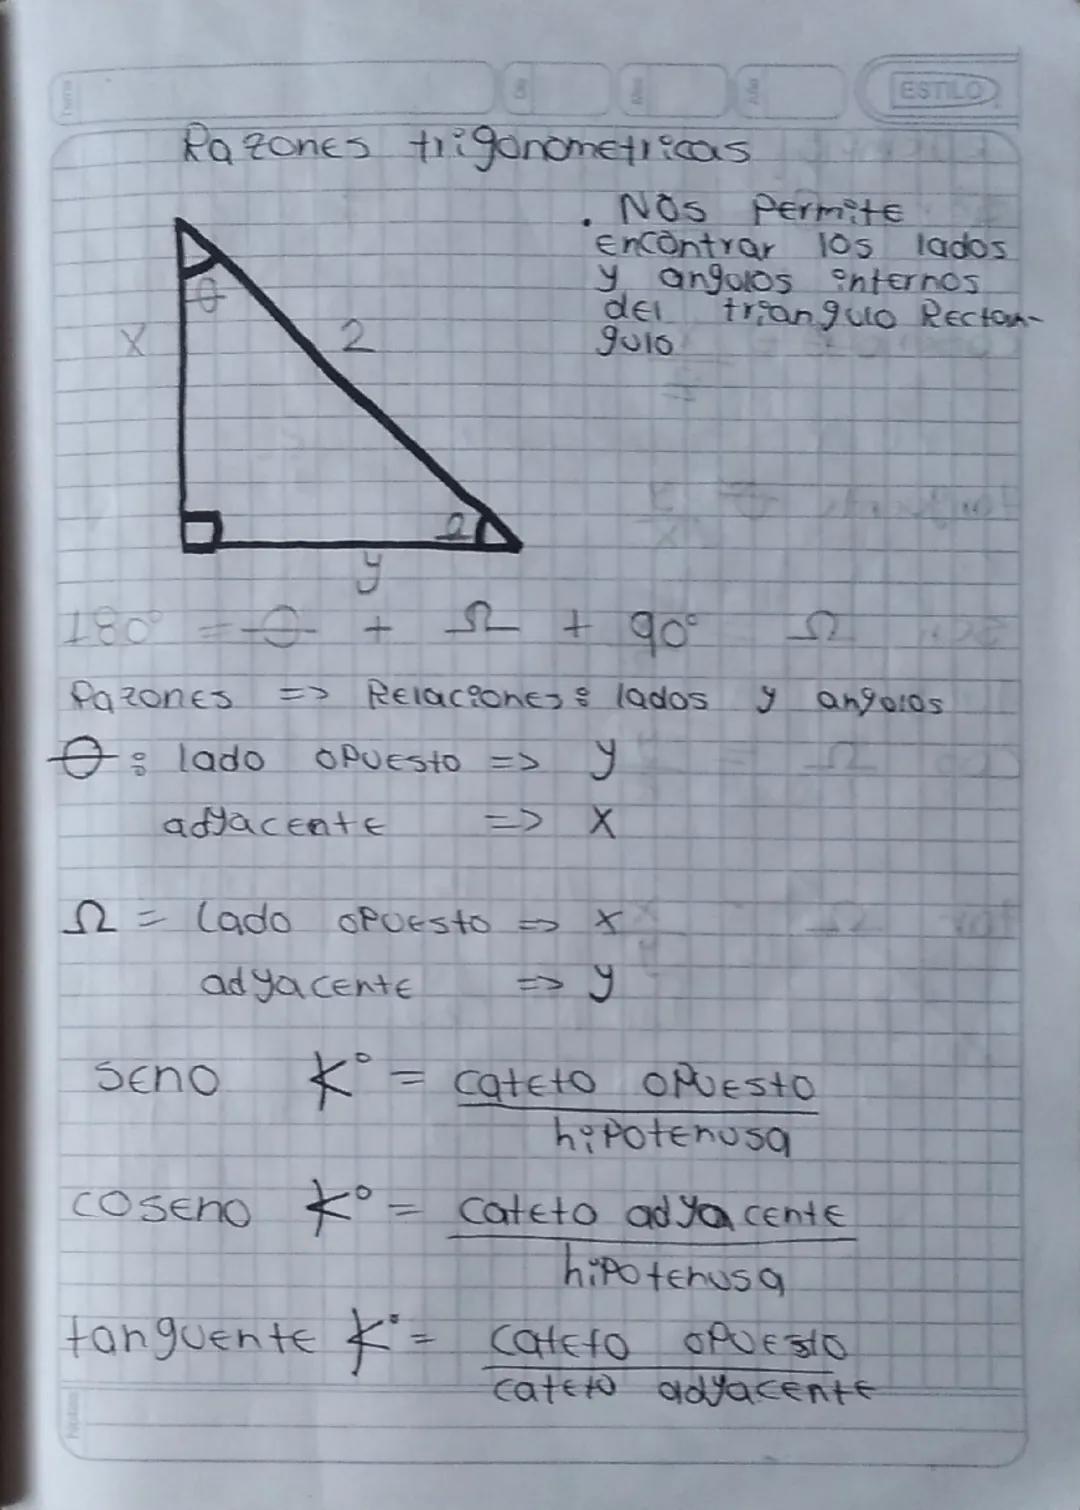 ESTILO
Razones trigonometricas
. Nos permite
encontrar los lados
y angulos internos
del triangulo Rectan-
gulo
θ
x
2
Ω
y
180° = θ + Ω + 90° Ω
Razones => Relaciones: lados y angulos
θ: lado opuesto => y
adyacente => x
Ω = lado opuesto => x
adyacente => y
seno K° = cateto opuesto
hipotenusa
coseno K° = cateto adyacente
hipotenusa
tanguente K° = cateto opuesto
cateto adyacente
Notas